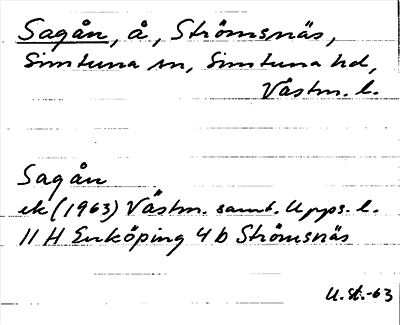 Sagån, å, Strömsnäs,
Simtuna sn, Simtuna hd,
Västm. l.
Sagån
ek (1963) Västm. samt. Upps. l.
11 H Enköping 4 b Strömsnäs
U. St. -63